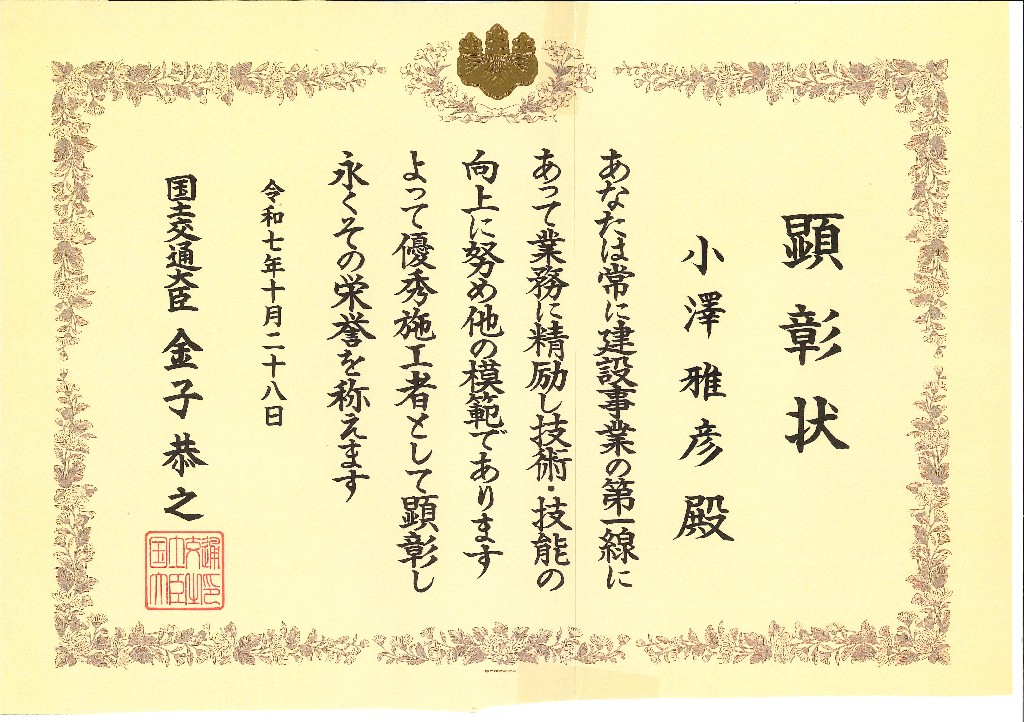 顕彰状
小澤雅彦殿
あなたは常に建設事業の第一線に
あって業務に精励し技術・技能の
向上に努め他の模範であります
よって優秀施工者として顕彰し
永くその栄誉を称えます
令和七年十月二十八日
国土交通大臣 金子恭之
国土交通大臣之印